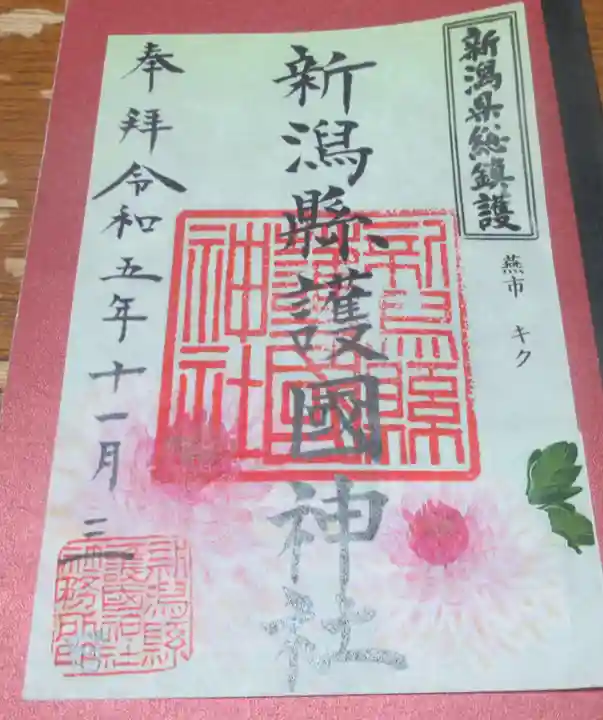 新潟県総鎮護
燕市 キク
新潟縣護國神社
奉拝令和五年十一月三
新潟縣護國神社
新潟縣
護國神社
社務所印